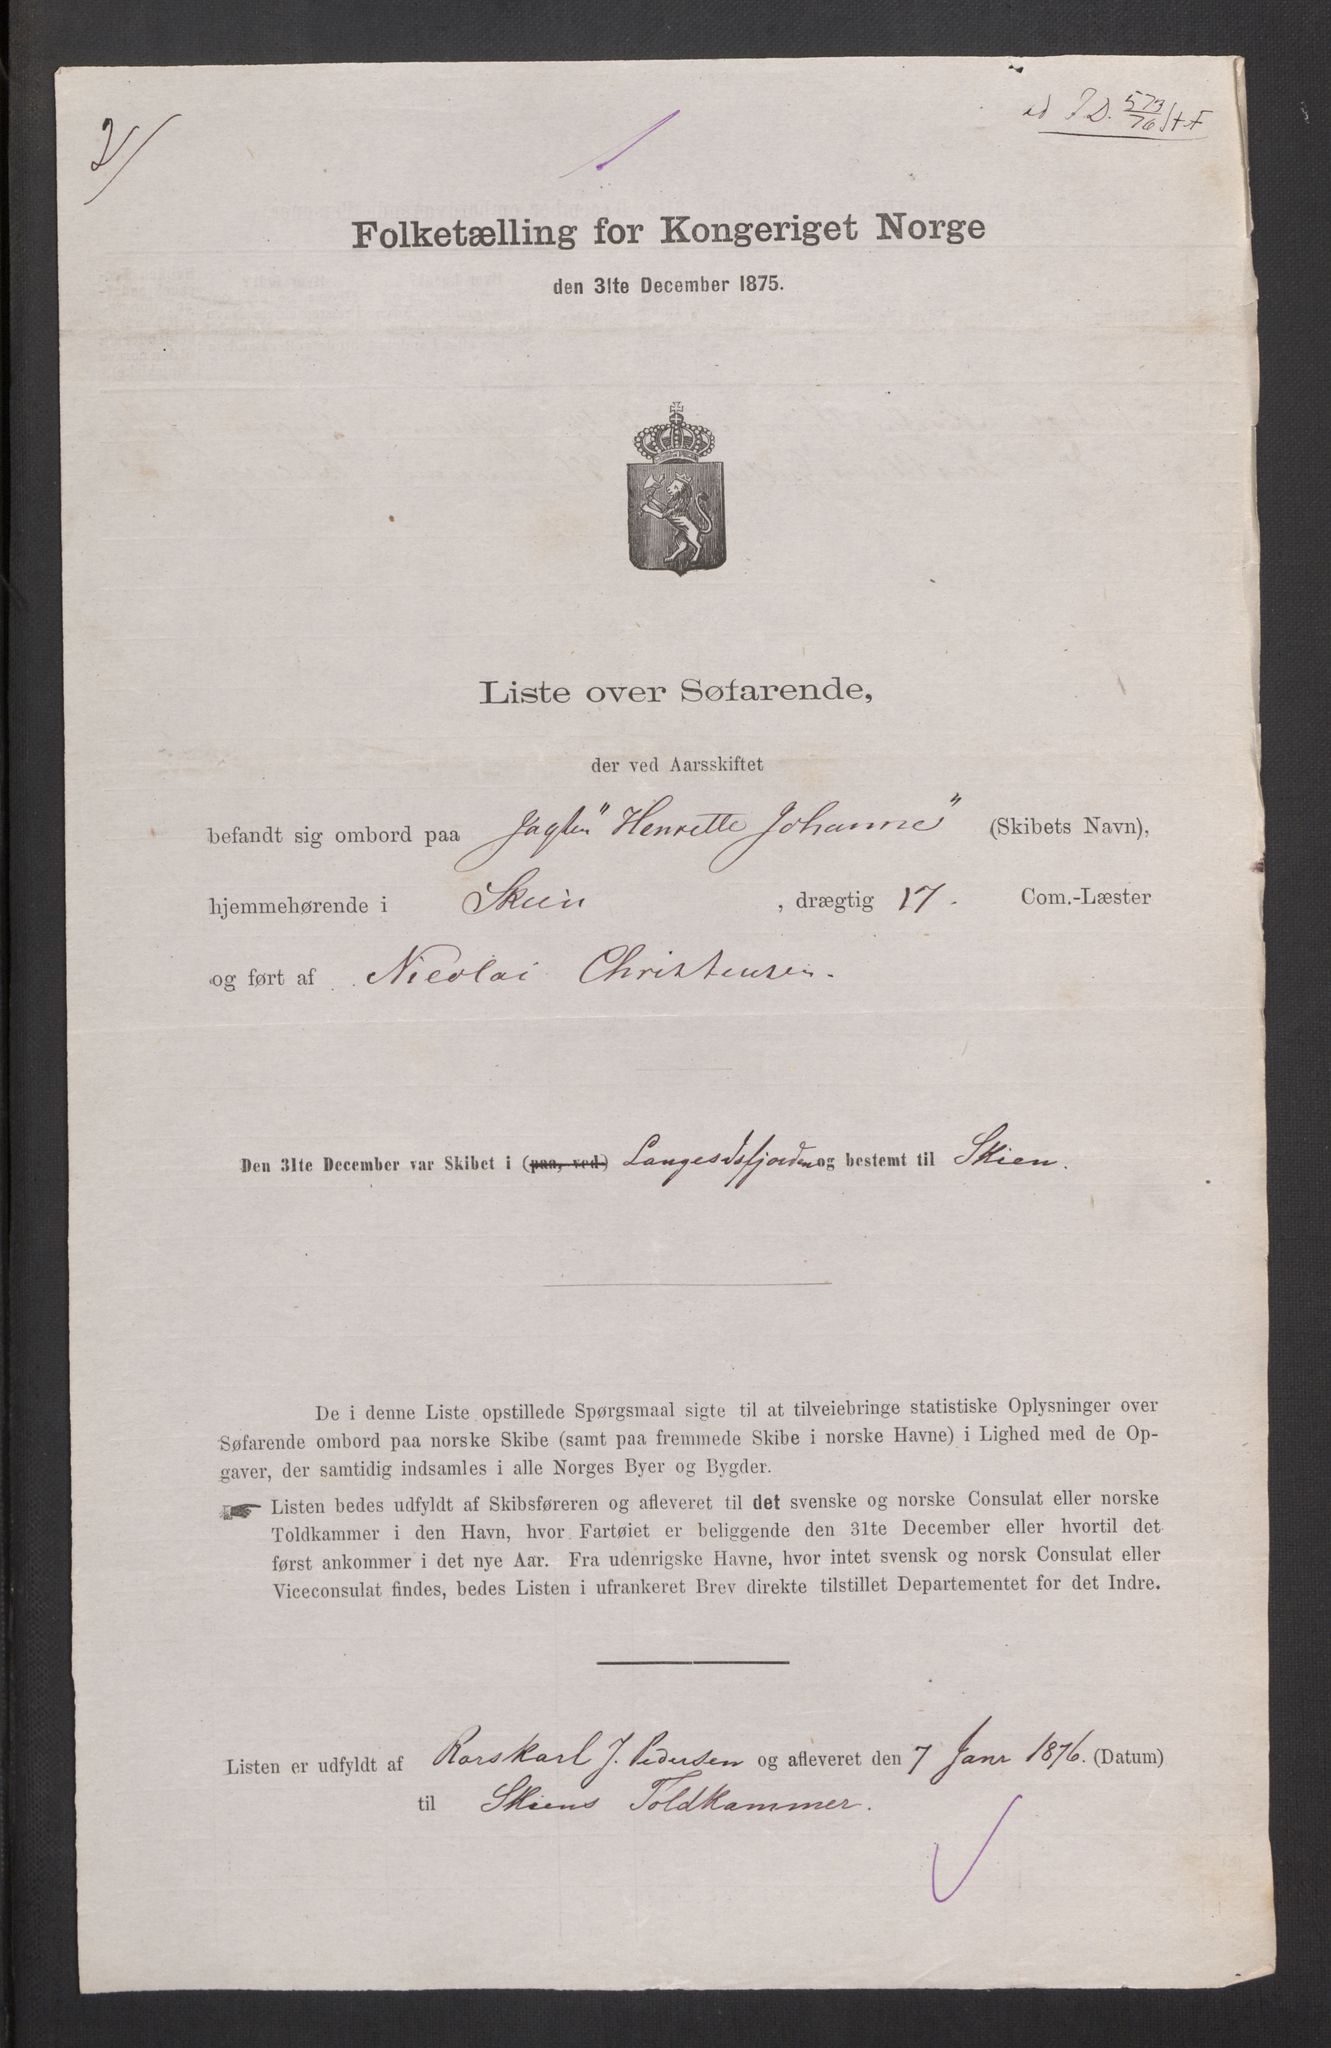 2/
ad J D. 573/76 St. F
Folketælling for Kongeriget Norge
den 31te December 1875.
Liste over Søfarende,
der ved Aarsskiftet
befandt sig ombord paa Jagten "Henrette Johanne" (Skibets Navn),
hjemmehørende i Skien , drægtig 17. Com.-Læster
og ført af Nicolai Christensen.
Den 31te December var Skibet i (paa, ved) Langesdsfjorden og bestemt til Skien.
De i denne Liste opstillede Spørgsmaal sigte til at tilveiebringe statistiske Oplysninger over
Søfarende ombord paa norske Skibe (samt paa fremmede Skibe i norske Havne) i Lighed med de Op-
gaver, der samtidig indsamles i alle Norges Byer og Bygder.
☛ Listen bedes udfyldt af Skibsføreren og afleveret til det svenske og norske Consulat eller norske
Toldkammer i den Havn, hvor Fartøiet er beliggende den 31te December eller hvortil det
først ankommer i det nye Aar. Fra udenrigske Havne, hvor intet svensk og norsk Consulat eller
Viceconsulat findes, bedes Listen i ufrankeret Brev direkte tilstillet Departementet for det Indre.
Listen er udfyldt af Rorskarl J. Pedersen og afleveret den 7 Janr 1876. (Datum)
til Skiens Toldkammer.